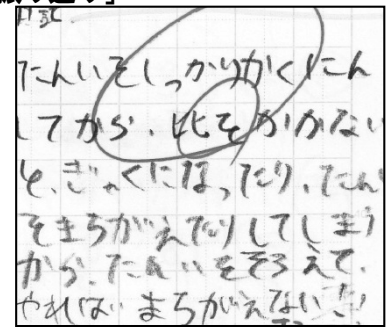 たんいをしっかりかくにん
してから、比をかかない
と、ぎゃくになったり、たんい
をまちがえたりしてしまう
から、たんいをそろえて、
やればまちがえない!!